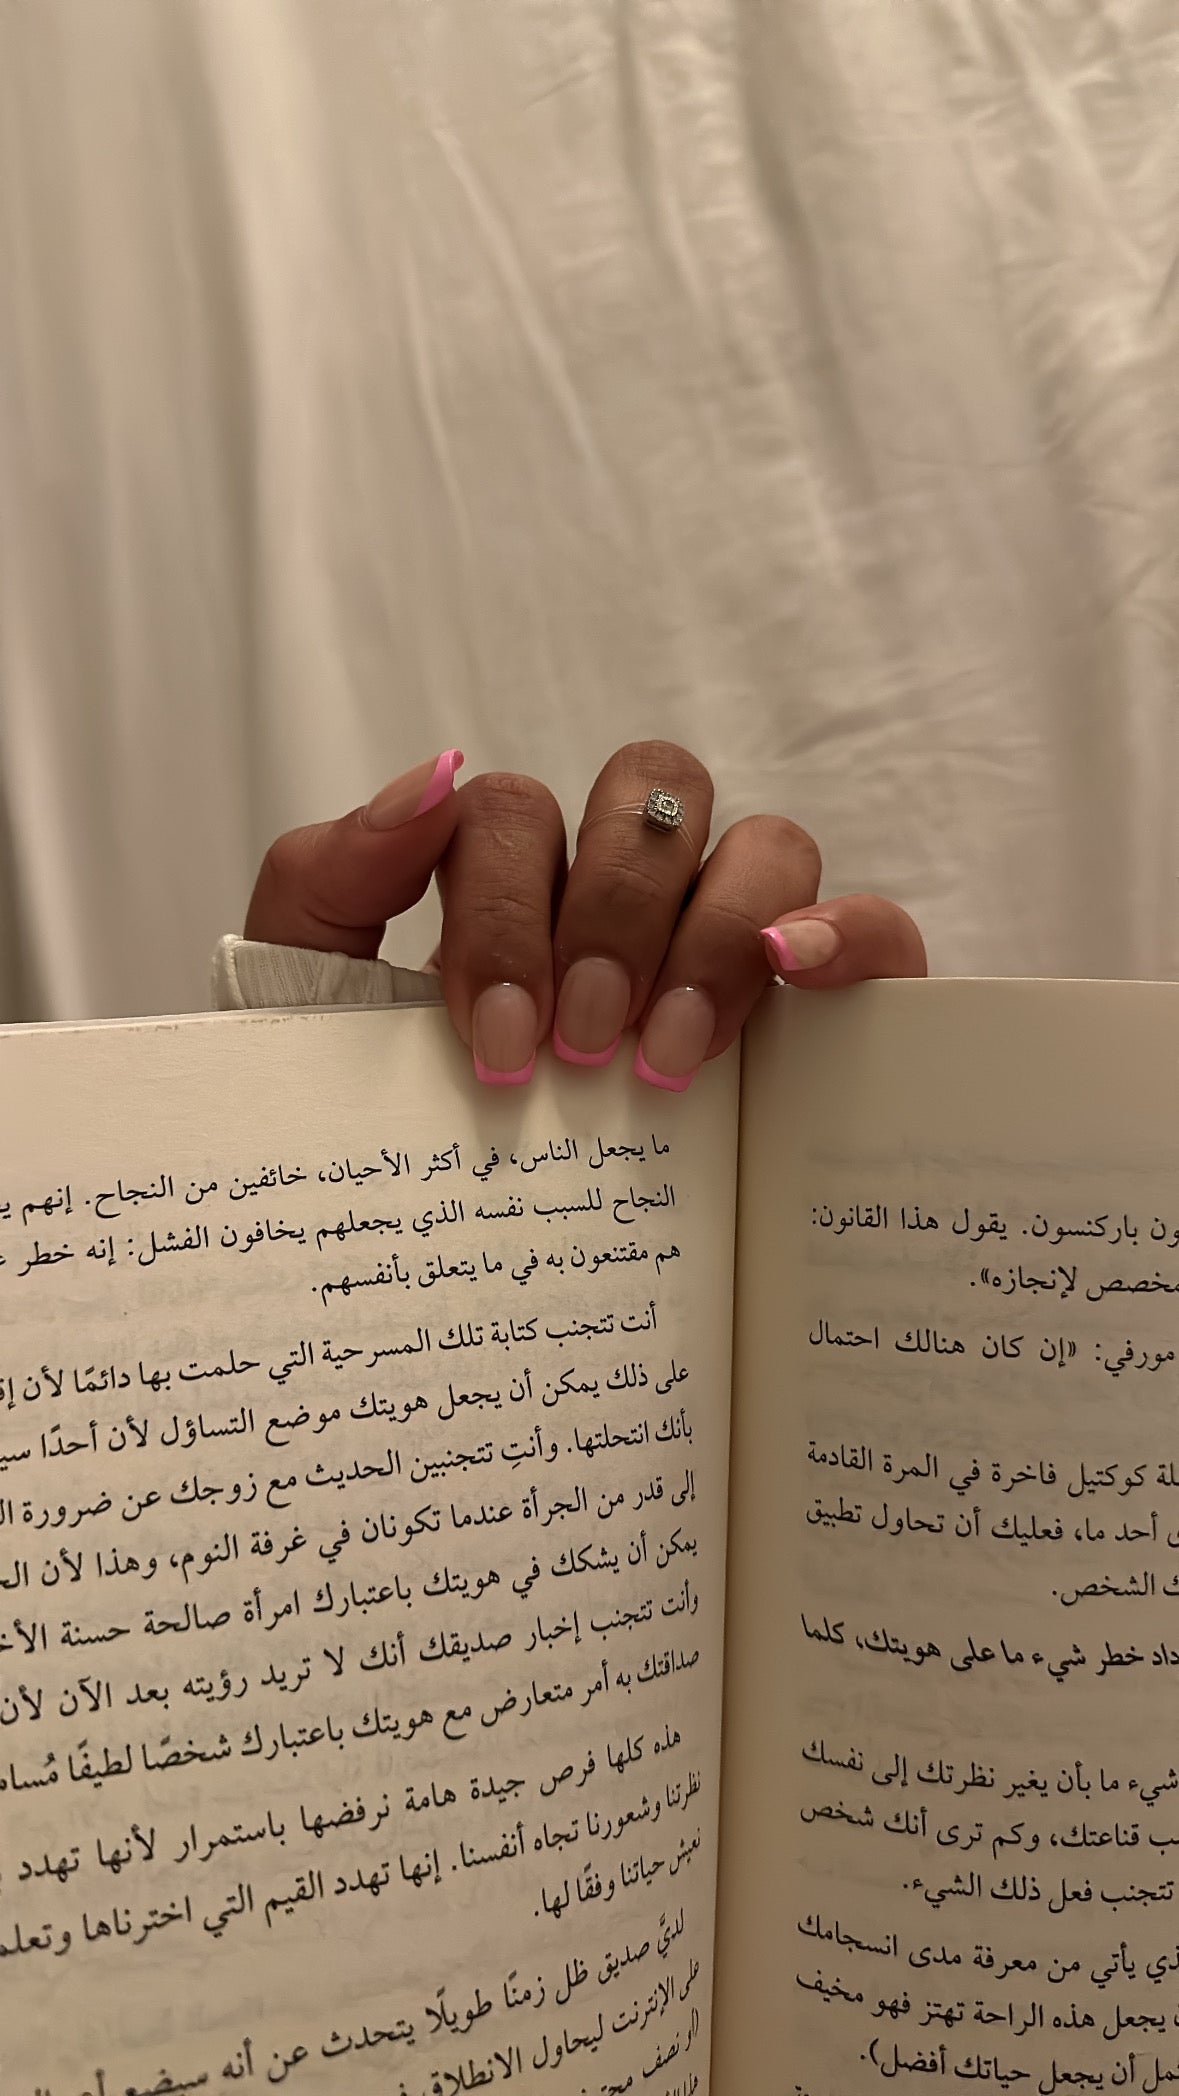 ون باركنسون. يقول هذا القانون:
مخصص لإنجازه».
مورفي: «إن كان هنالك احتمال
لة كوكتيل فاخرة في المرة القادمة
أحد ما، فعليك أن تحاول تطبيق
الشخص.
داد خطر شيء ما على هويتك، كلما
شيء ما بأن يغير نظرتك إلى نفسك
قناعتك، وكم ترى أنك شخص
تتجنب فعل ذلك الشيء.
ذي يأتي من معرفة مدى انسجامك
يجعل هذه الراحة تهتز فهو مخيف
أن يجعل حياتك أفضل).
ما يجعل الناس، في أكثر الأحيان، خائفين من النجاح. إنهم
النجاح للسبب نفسه الذي يجعلهم يخافون الفشل: إنه خطر
هم مقتنعون به في ما يتعلق بأنفسهم.
أنت تتجنب كتابة تلك المسرحية التي حلمت بها دائمًا لأن
على ذلك يمكن أن يجعل هويتك موضع التساؤل لأن أحدًا
بأنك انتحلتها. وأنتِ تتجنبين الحديث مع زوجك عن ضرورة
إلى قدر من الجرأة عندما تكونان في غرفة النوم، وهذا لأن
يمكن أن يشكك في هويتك باعتبارك امرأة صالحة حسنة
وأنت تتجنب إخبار صديقك أنك لا تريد رؤيته بعد الآن لأن
صداقتك به أمر متعارض مع هويتك باعتبارك شخصًا لطيفًا
هذه كلها فرص جيدة هامة نرفضها باستمرار لأنها تهدد
نظرتنا وشعورنا تجاه أنفسنا. إنها تهدد القيم التي اخترناها
نعيش حياتنا وفقًا لها.
لديَّ صديق ظل زمنًا طويلًا يتحدث عن أنه سيضع
على الإنترنت ليحاول الانطلاق
(أو نصف